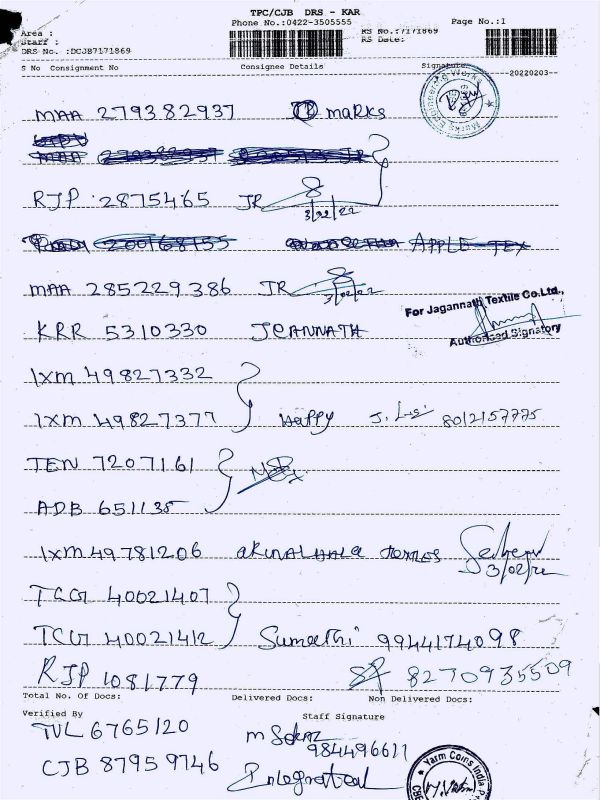 TPC/CJB DRS - KAR
Phone No.:0422-3505555 Page No.:1
Area : RS No.:7171869
Staff : RS Date:
DRS No. :DCJB7171869
S No Consignment No Consignee Details Signature
20220203
MAA 279382937 MARKS
Marks Engineering Works
RJP 2875465 JR
3/02/22
APPLE TEX
MAA 285229386 JR
3/02/22
For Jagannath Textile Co.Ltd.,
KRR 5310330 JGANNATH
Authorised Signatory
IXM 49827332
IXM 49827377 HAPPY 8012157775
TEN 7207161
ADB 651135
IXM 49781206
3/02/22
TCG 40021407
TCG 40021412 Sumathi 9944174098
RJP 1081779 8270935509
Total No. Of Docs: Delivered Docs: Non Delivered Docs:
Verified By Staff Signature
TVL 6765120 984496611
CJB 87959746 Integrated
Yarm Coins India